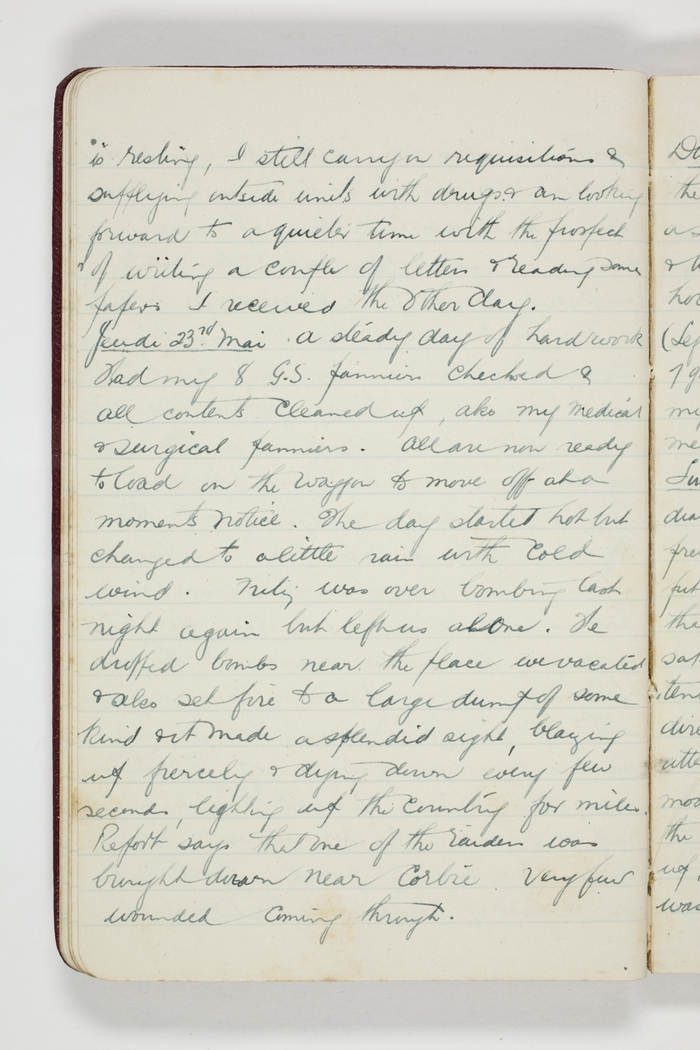 is resting, I still carry on requisitions &
supplying outside units with drugs & am looking
forward to a quieter time with the prospect
of writing a couple of letters & reading some
papers I received the other day.
Jeudi 23rd Mai. a steady day of hard work
Had my 8 G.S. panniers checked &
all contents cleaned up, also my medical
& surgical panniers. All are now ready
to load on the waggon to move off at a
moments notice. The day started hot but
changed to a little rain with cold
wind. Fritz was over bombing last
night again but left us alone. He
dropped bombs near the place we vacated
& also set fire to a large dump of some
kind & it made a splendid sight, blazing
up fiercely & dying down every few
seconds, lighting up the country for miles.
Report says that one of the raiders was
brought down near Corbie. Very few
wounded coming through.
Do
the
a s
& t
ho
(Se
7 9
my
me
Su
dia
fre
put
the
sat
ten
dire
utte
moo
the
up,
was